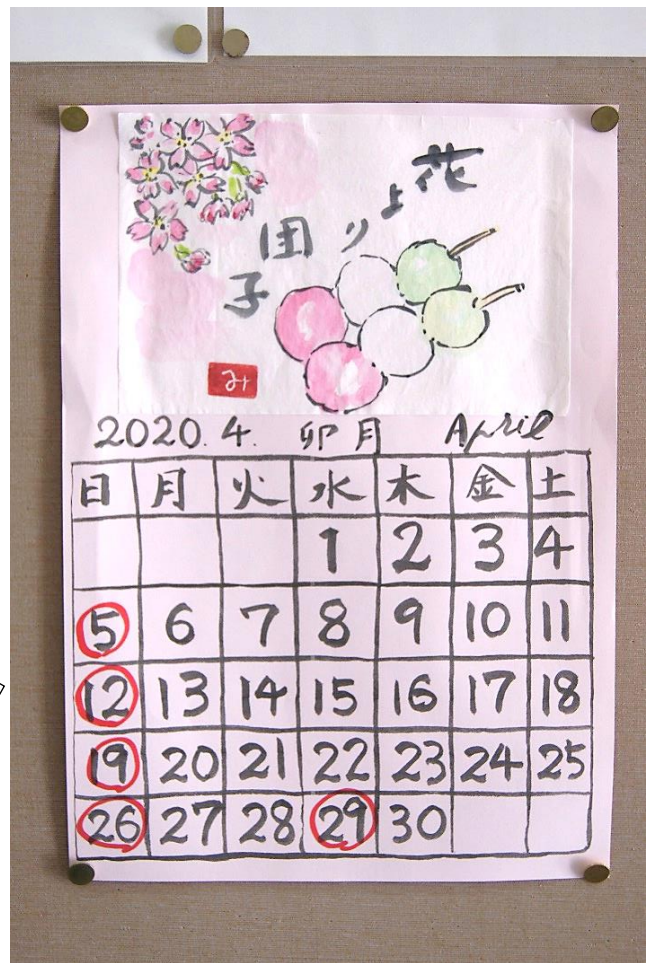 花より団子
み
2020.4. 卯月 April
日 月 火 水 木 金 土
1 2 3 4
5 6 7 8 9 10 11
12 13 14 15 16 17 18
19 20 21 22 23 24 25
26 27 28 29 30